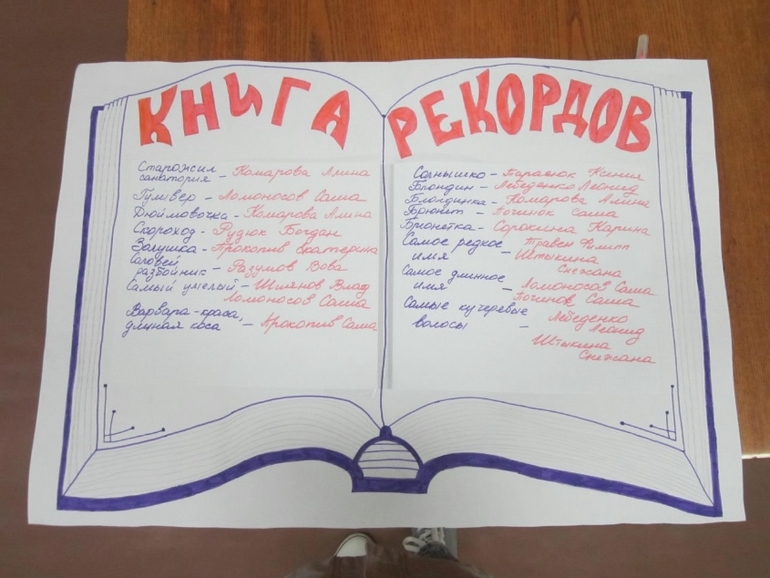 КНИГА РЕКОРДОВ
Старожил
санатория – Комарова Алина
Гуливер – Ломоносов Саша
Дюймовочка – Комарова Алина
Скороход – Рудюк Богдан
Золушка – Прокопив Екатерина
Соловей
разбойник – Разумов Вова
Самый умелый – Шилянов Влад
Ломоносов Саша
Варвара-краса,
длиная коса – Прокопив Саша
Солнышко – Таранюк Ксения
Блондин – Лебеденко Леонид
Блондинка – Комарова Алина
Брюнет – Починок Саша
Брюнетка – Сорокина Карина
Самое редкое – Правен Филипп
имя Штыкина
Снежана
Самое длинное
имя – Ломоносов Саша
Починов Саша
Самые кучеревые Лебеденко
волосы – Леонид
Штыкина
Снежана